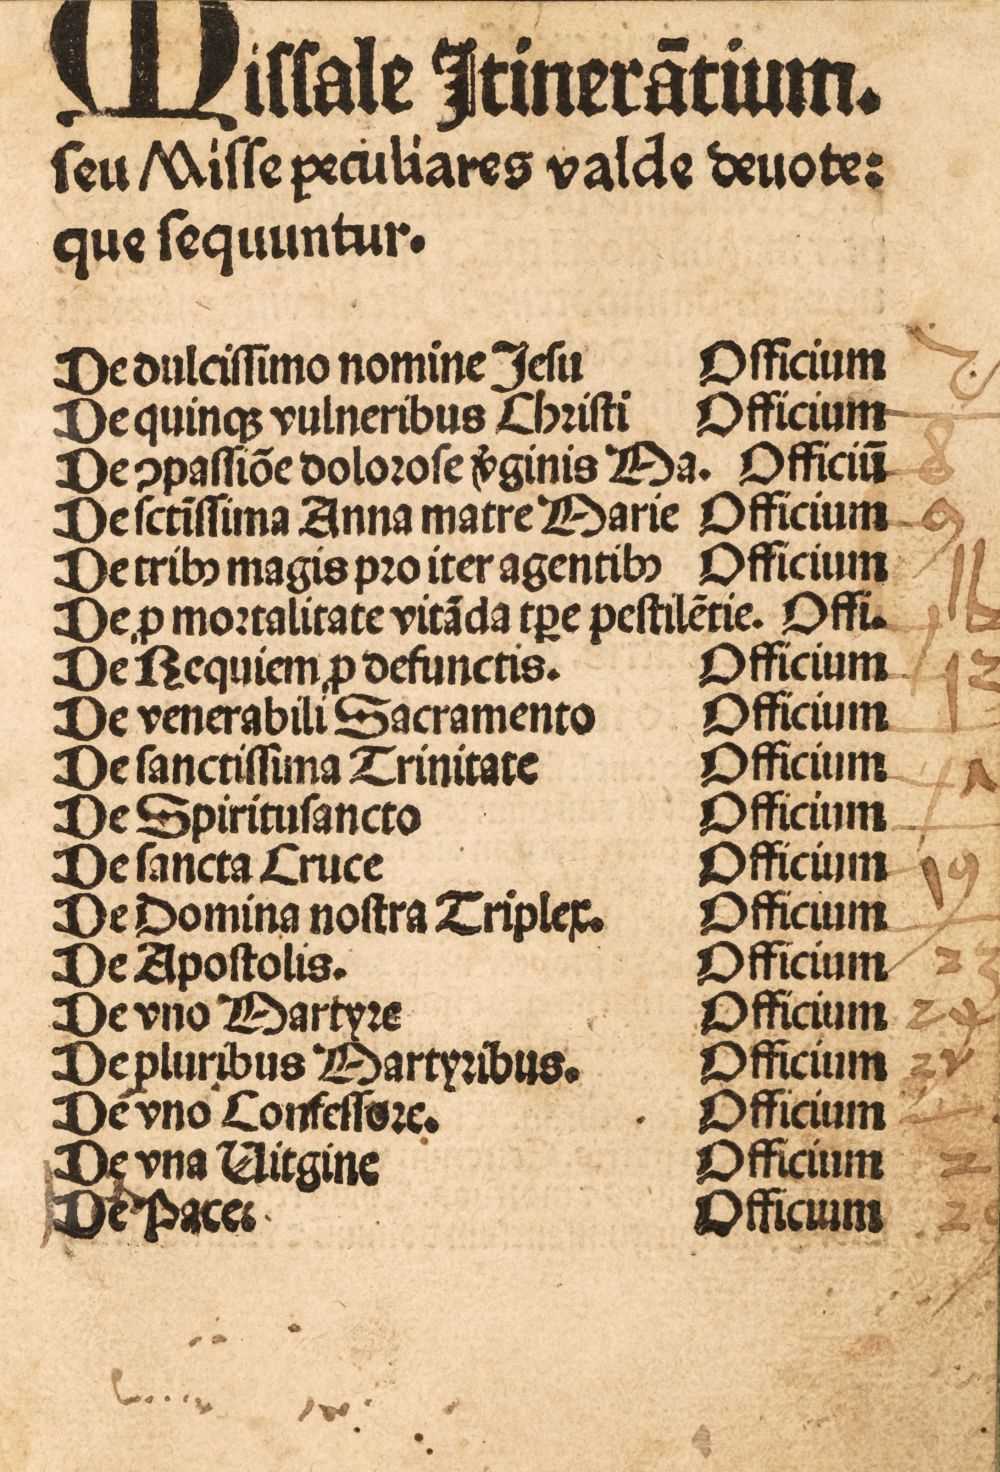 Missale Itinerātium.
seu Misse peculiares valde deuote:
que sequuntur.
De dulcissimo nomine Jesu Officium 7
De quinqꝫ vulneribus Christi Officium
De ↄpassiōe dolorose v̄ginis Ma. Officiū 8
De sctīssima Anna matre Marie Officium 9
De tribꝰ magis pro iter agentibꝰ Officium
De ꝓ mortalitate vitāda tꝑe pestilētie. Offi.
De Requiem ꝓ defunctis. Officium 13
De venerabili Sacramento Officium
De sanctissima Trinitate Officium
De Spiritusancto Officium
De sancta Cruce Officium 19
De Domina nostra Triplex. Officium
De Apostolis. Officium 23
De vno Martyre Officium 24
De pluribus Martyribus. Officium
De vno Confessore. Officium
De vna Uitgine Officium
De Pace. Officium 29